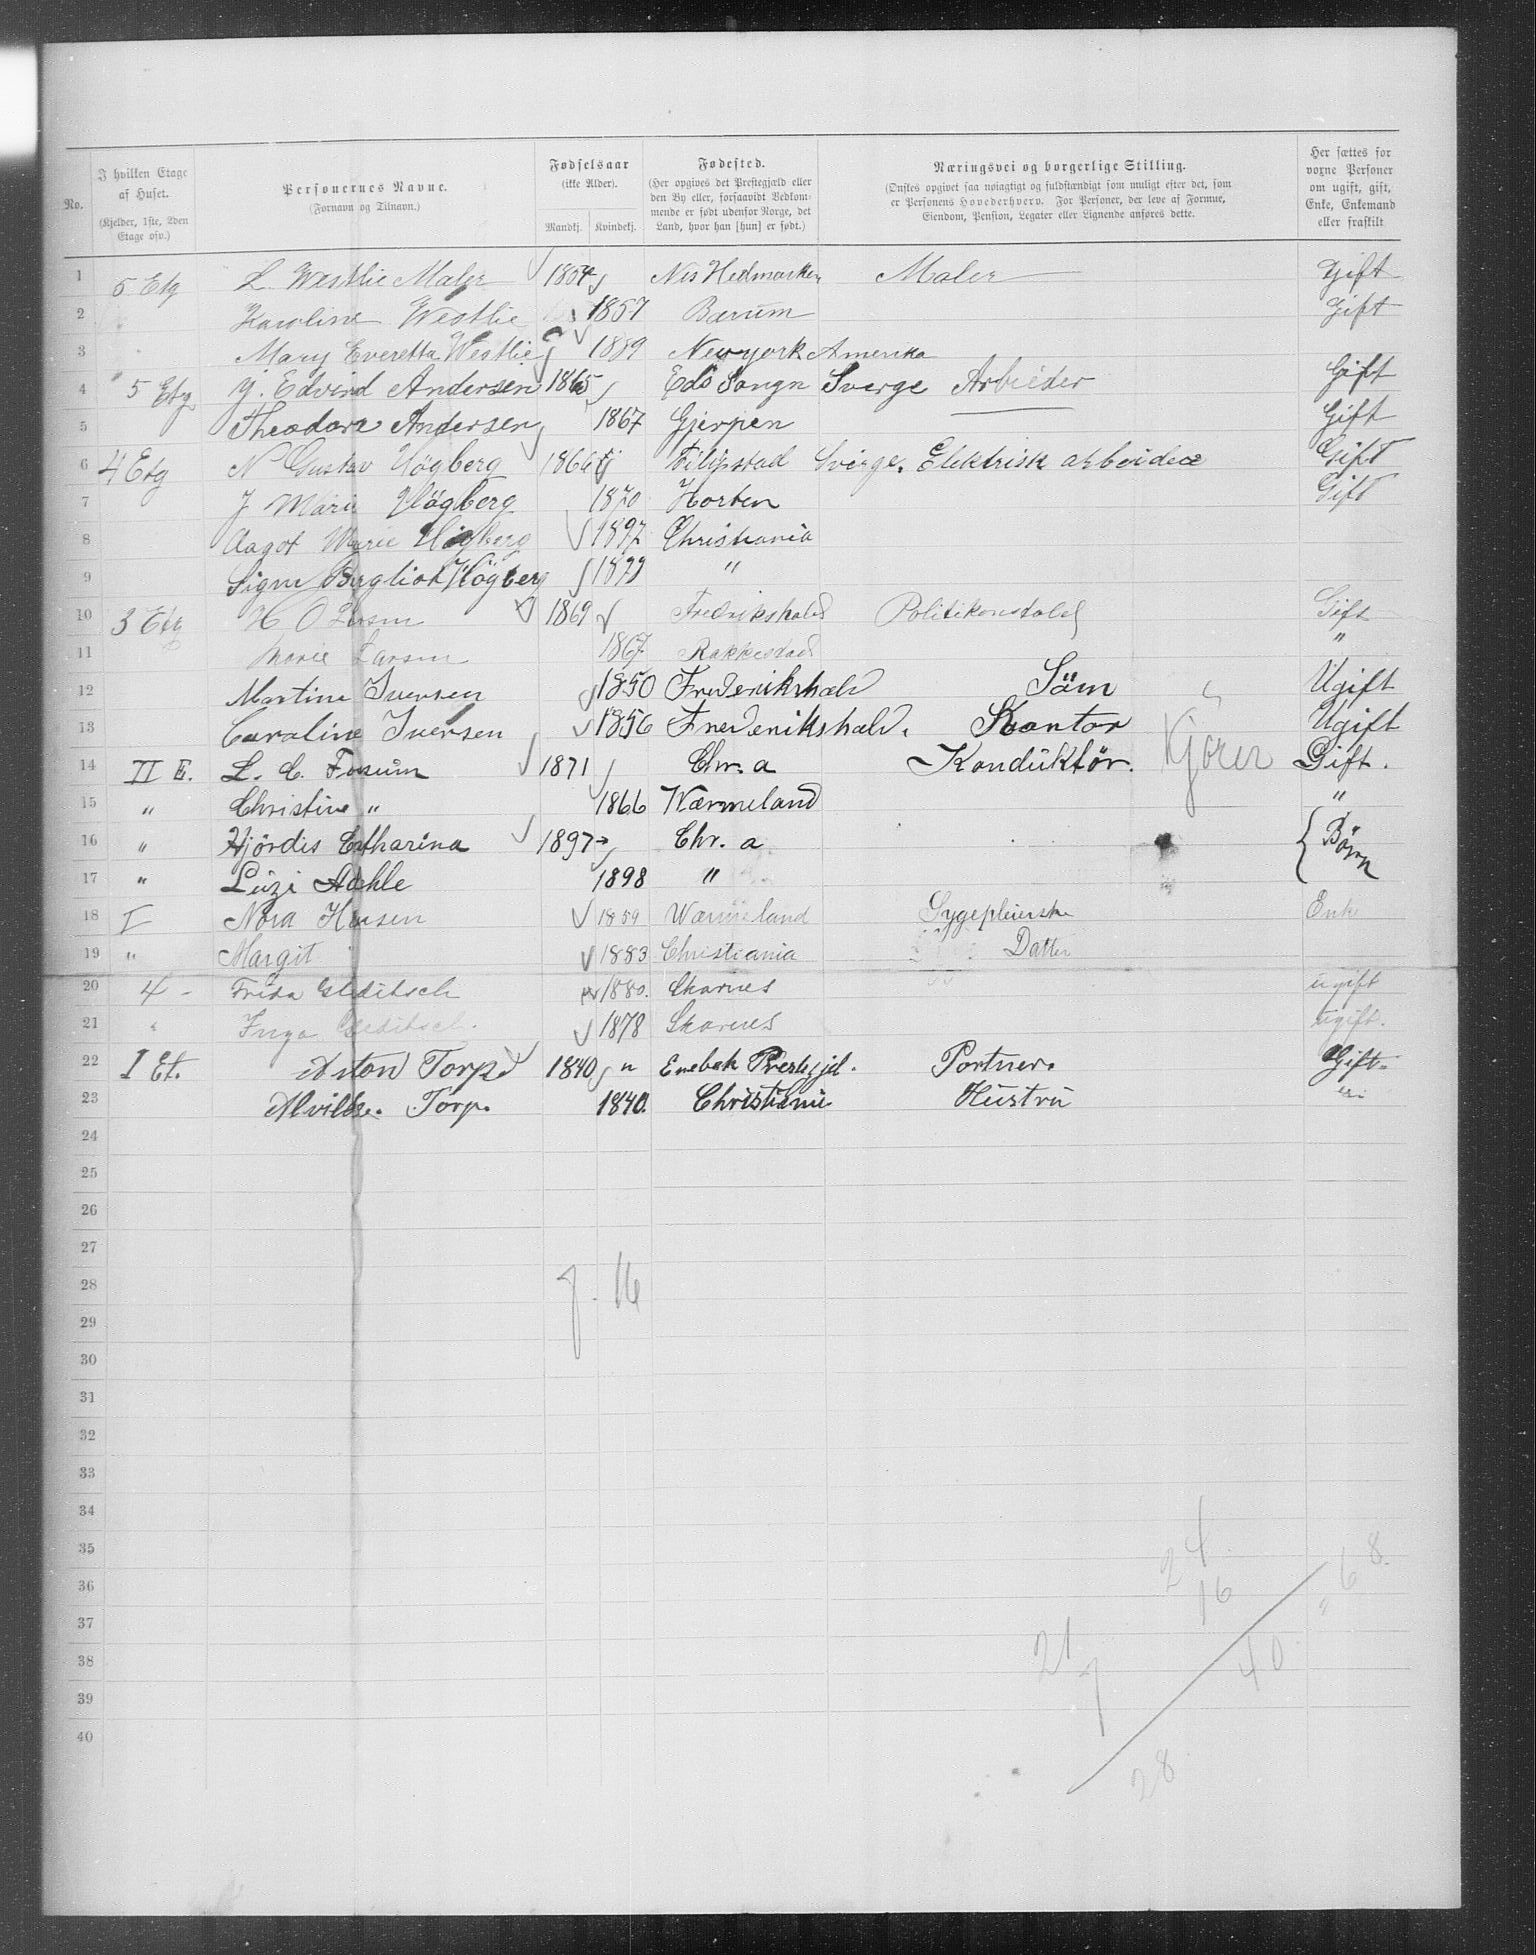 No.
I hvilken Etage af Huset.
(Kjelder, 1ste, 2den Etage osv.)
Personernes Navne.
(Fornavn og Tilnavn.)
Fødselsaar
(ikke Alder).
Mandkj. Kvindekj.
Fødested.
(Her opgives det Prestegjæld eller den By eller, forsaavidt Vedkommende er født udenfor Norge, det Land, hvor han [hun] er født.)
Næringsvei og borgerlige Stilling.
(Ønskes opgivet saa nøiagtigt og fuldstændigt som muligt efter det, som er Personens Hovederhverv. For Personer, der leve af Formue, Eiendom, Pension, Legater eller Lignende anføres dette.
Her sættes for voxne Personer om ugift, gift, Enke, Enkemand eller fraskilt
1 5 Etg L. Westlie Maler 1854 Nes Hedmarken Maler Gift
2 Karoline Westlie 1857 Bærum Gift
3 Mary Everetta Westlie 1889 Newyork Amerika
4 5 Etg J. Edvind Andersen 1865 Eds Songn Sverge Arbieder Gift
5 Theodora Andersen 1867 Gjerpen Gift
6 4 Etg N Gustav Högberg 1866 Filipstad Sverge. Elektrisk arbeider Gift
7 J Marie Högberg 1870 Horten Gift
8 Aagot Marie Högberg 1897 Christiania
9 Signe Bergliot Högberg 1899 "
10 3 Etg H O Larsen 1869 Fredrikshald Politikonstabel Gift
11 Marie Larsen 1867 Rakkestad "
12 Martine Iversen 1850 Frederikshald Söm Ugift
13 Caroline Iversen 1856 Frederikshald. Kontor Ugift
14 II E. L. C. Fossum 1871 Chr. a Konduktör. Kjører Gift.
15 " Christine " 1866 Værmeland "
16 " Hjördis Catharina 1897 Chr. a Börn
17 " Luzi 1898 "
18 I Nora Hansen 1859 Wærmeland Sygepleierske Enke
19 " Margit 1883 Christiania Datter
20 4 - Frida Gleditsch 1880. Skarnes ugift
21 " Inga Gleditsch. 1878 Skarnes ugift.
22 I Et. Anton Torp 1840 Enebak Prestgjd. Portner. Gift
23 Alvilde. Torp. 1840. Christiania Hustru
24
25
26
27
28 7. 16
29
30
31
32
33
34
35 24 8.
36 16 6
37 21
38 7 40
39
40 28